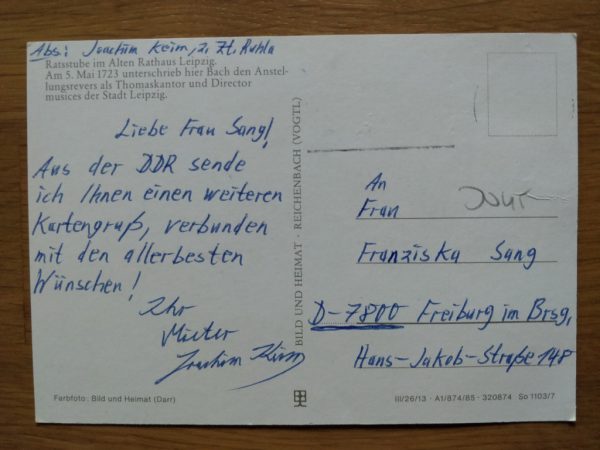 Abs: Joachim Keim, z. Zt. Ruhla
Ratsstube im Alten Rathaus Leipzig.
Am 5. Mai 1723 unterschrieb hier Bach den Anstel-
lungsrevers als Thomaskantor und Director
musices der Stadt Leipzig.
Liebe Frau Sang!
Aus der DDR sende
ich Ihnen einen weiteren
Kartengruß, verbunden
mit den allerbesten
Wünschen!
Ihr
Mieter
Joachim Keim
BILD UND HEIMAT · REICHENBACH (VOGTL)
An
Frau
Franziska Sang
D-7800 Freiburg im Brsg,
Hans-Jakob-Straße 148
Farbfoto: Bild und Heimat (Darr)
III/26/13 · A1/874/85 · 320874 So 1103/7